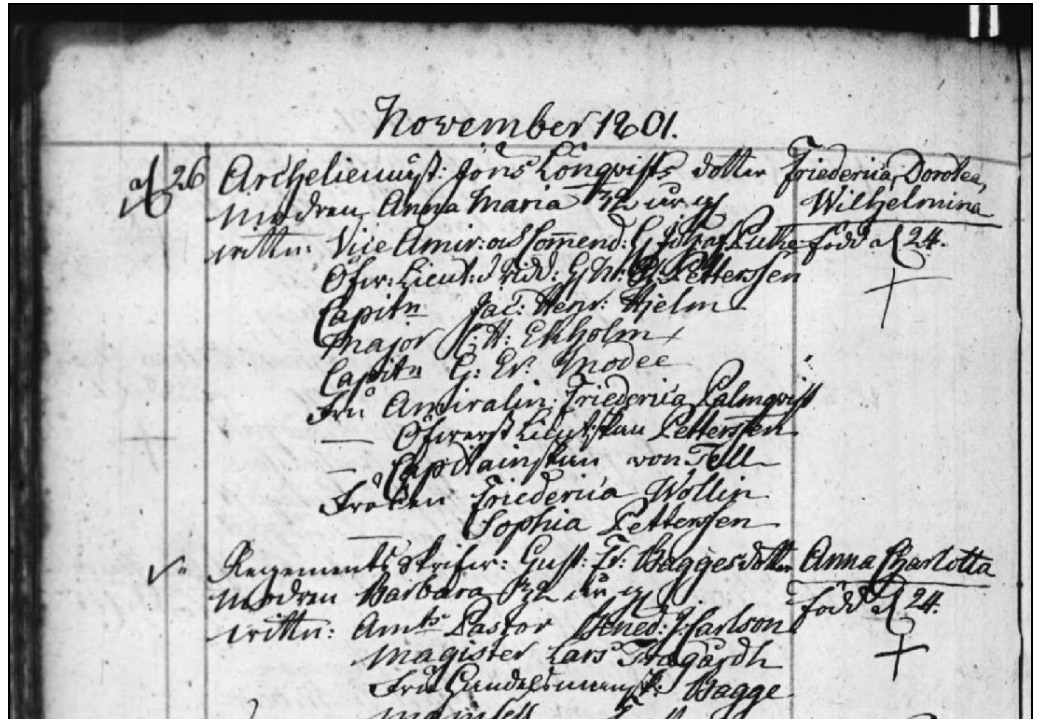 November 1801.
26 Archeliemäst: Jöns Lönqvists dotter Friederica, Dorotea,
modren Anna Maria 32 år g Wilhelmina
wittn: Vice Amir: och Comend: född d 24.
Öfw: Lieut: Ridd: Petterssen
Capitn Jac: Henr: Hjelm
Major C: H: Ekholm
Capitn G: Er: Modee
Fru Amiralin: Friederica Palmqvist
— Öfwerst Lieutskan Petterssen
— Capitainskan von Tell
Fröken Friederica Wollin
— Sophia Petterssen
Regements Skrifw: Gust: Fr: Bagges dotter Anna Charlotta
modren Barbara 32 år g född d 24.
wittn: Amts Pastor Bened: J: Carlson
Magister Lars Trägårdh
Fru Bagge
Mamsell